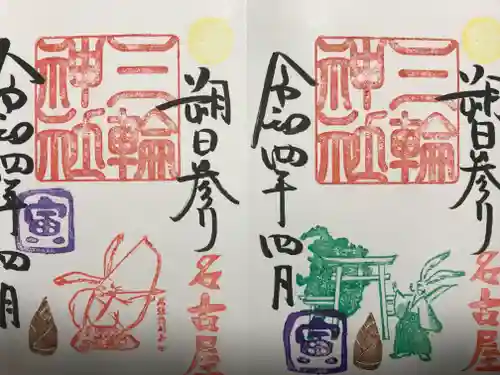 朔日参り
三輪
神社
令和四年四月
寅
名古屋
朔日参り
三輪
神社
令和四年四月
寅
名古屋